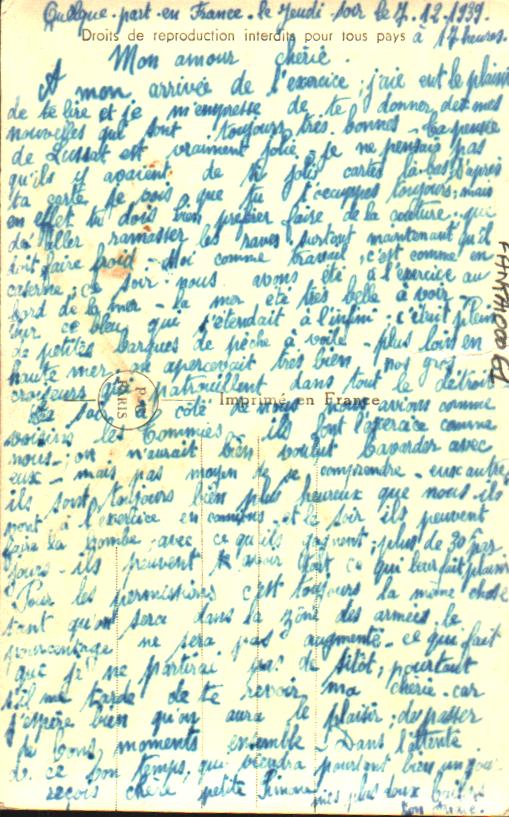 Quelque part en France le Jeudi soir le 7.12.1939.
Droits de reproduction interdits pour tous pays à 17 heures.
Mon amour chérie.
A mon arrivée de l'exercice j'aie eut le plaisir
de te lire et je m'empresse de te donner de mes
nouvelles qui sont toujours très bonnes - La pensée
de Lussat est vraiment jolie - je ne pensais pas
qu'ils y avaient de si joli cartes là-bas d'après
ta carte je vois que tu t'occupes toujours; mais
en effet tu dois bien préférer faire de la couture que
de aller ramasser les raves surtout maintenant qu'il
doit faire froid - Moi comme travail c'est comme en
caserne; ce soir nous avons été à l'exercice au
bord de la mer - la mer été très belle à voir -
sur ce bleu qui s'étendait à l'infini c'était plein
de petites barques de pêche à voile - plus loin en
haute mer on apercevait très bien nos gros
croiseurs qui patrouillent dans tout le détroit
PARIS
Imprimé en France
côté de nous nous avions comme
voisins les Tommies - ils font l'exercice comme
nous - on n'aurait bien voulut bavarder avec
eux - mais pas moyen de se comprendre - eux autres
ils sont toujours bien plus heureux que nous - ils
vont à l'exercice en camions et le soir ils peuvent
faire la bombe avec ce qu'ils gagnent; plus de 30 par
jours - ils peuvent avoir tout ce qui leur fait plaisir
Pour les permissions c'est toujours la même chose
tant qu'ont sera dans la zône des armées, le
pourcentage ne sera pas augmenté - ce qui fait
que je ne partirai pas de sitôt; pourtant
s'il me tarde de te revoir ma chérie - car
j'espère bien qu'on aura le plaisir, de passer
de bons moments ensemble - Dans l'attente
de ce bon temps, qui viendra pourtant bien un jour
reçois chère petite Simone mes plus doux baisers
Ton
FANTAC00